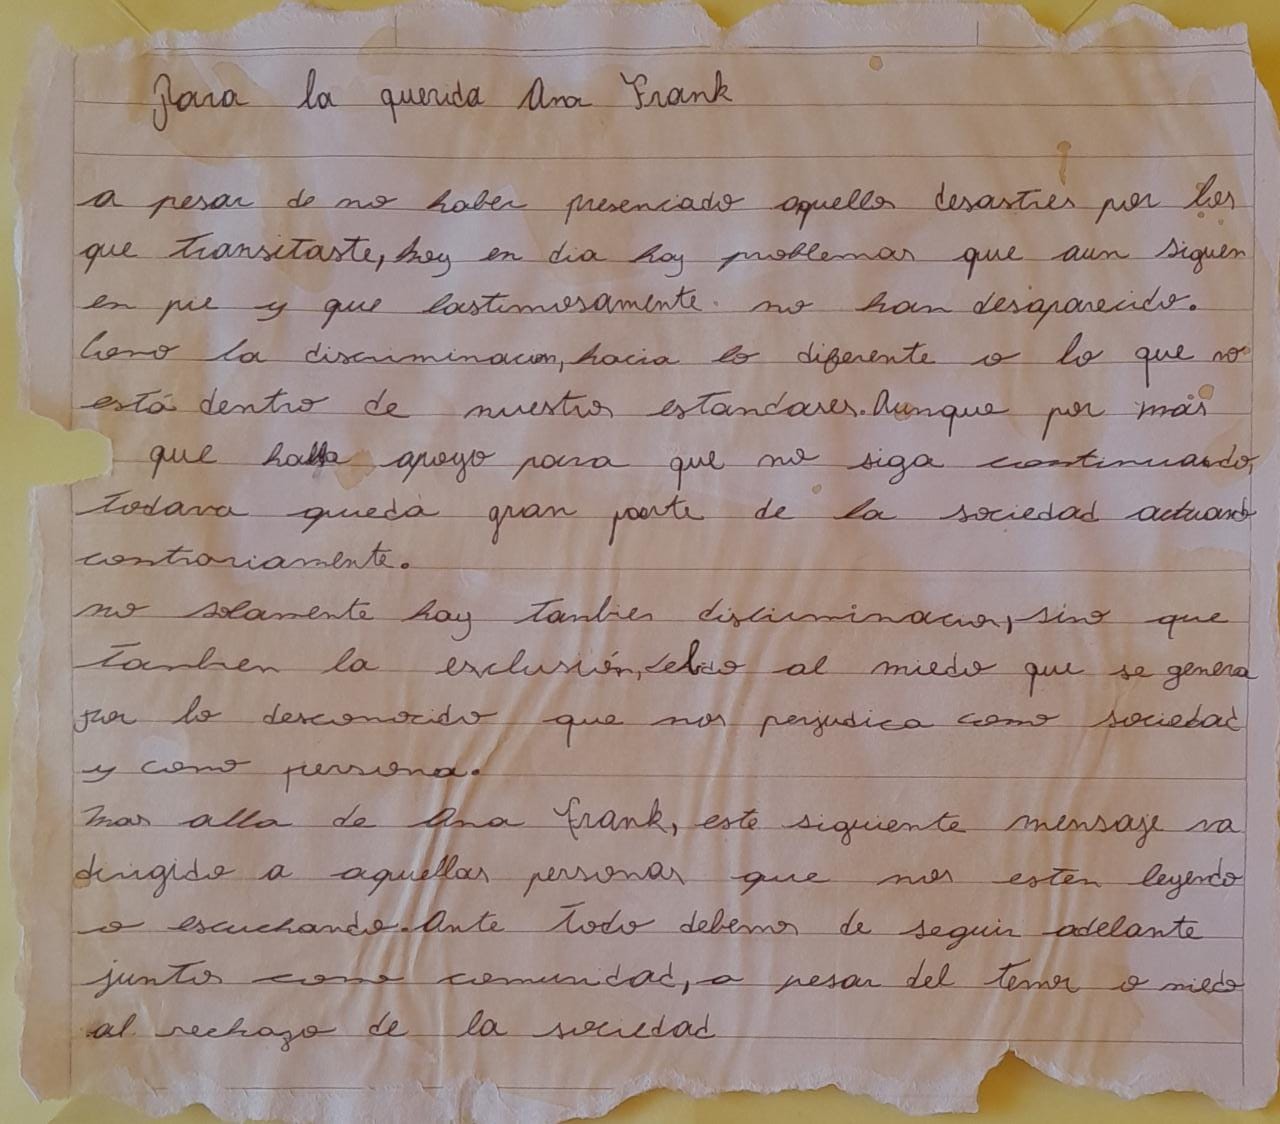 Para la querida Ana Frank
a pesar de no haber presenciado aquellos desastres por los
que transitaste, hoy en dia hay problemas que aun siguen
en pie y que lastimosamente no han desaparecido.
Como la discriminacion, hacia lo diferente o lo que no
está dentro de nuestros estandares. Aunque por más
que halla apoyo para que no siga continuando,
todava queda gran parte de la sociedad actuando
contrariamente.
no solamente hay tanbien discriminacion, sino que
tanbien la exclusión, debido al miedo que se genera
por lo desconocido que nos perjudica como sociedad
y como persona.
Mas alla de Ana Frank, este siguiente mensaje va
dirigido a aquellas personas que nos estén leyendo
o escuchando. Ante todo debemos de seguir adelante
juntos como comunidad, a pesar del temor o miedo
al rechazo de la sociedad